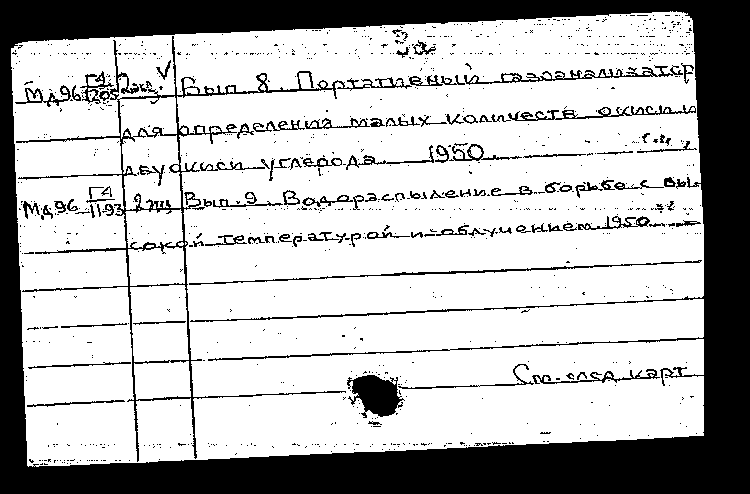 3а
Мд96 Г4/1205 2экз. V Вып 8. Портативный газоанализатор
для определения малых количеств окиси и
двуокиси углерода. 1950.
Мд96 Г4/1193 2 экз Вып. 9. Водораспыление в борьбе с вы-
сокой температурой и облучением. 1950
См. след карт